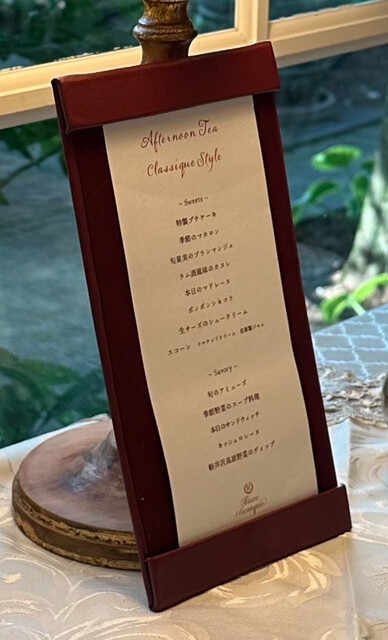 Afternoon Tea
Classique Style
~ Sweets ~
特製プチケーキ
季節のマカロン
旬果実のブランマンジェ
ラム酒風味のカヌレ
本日のマドレーヌ
ボンボンショコラ
生チーズのシュークリーム
スコーン クロテッドクリーム 自家製ジャム
~ Savory ~
旬のアミューズ
季節野菜のスープ料理
本日のサンドウィッチ
キッシュロレーヌ
軽井沢高原野菜のディップ
classique